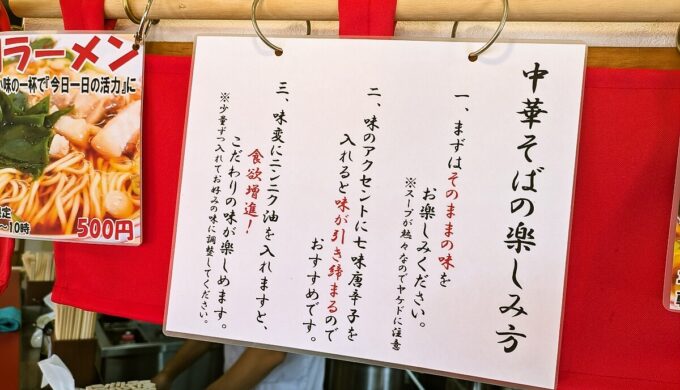 中華そばの楽しみ方
一、まずはそのままの味を
お楽しみください。
※スープが熱々なのでヤケドに注意
二、味のアクセントに七味唐辛子を
入れると味が引き締まるので
おすすめです。
三、味変にニンニク油を入れますと、
食欲増進！
こだわりの味が楽しめます。
※少量ずつ入れてお好みの味に調整してください。
ラーメン
味の一杯で『今日一日の活力』に
定
～10時
500円